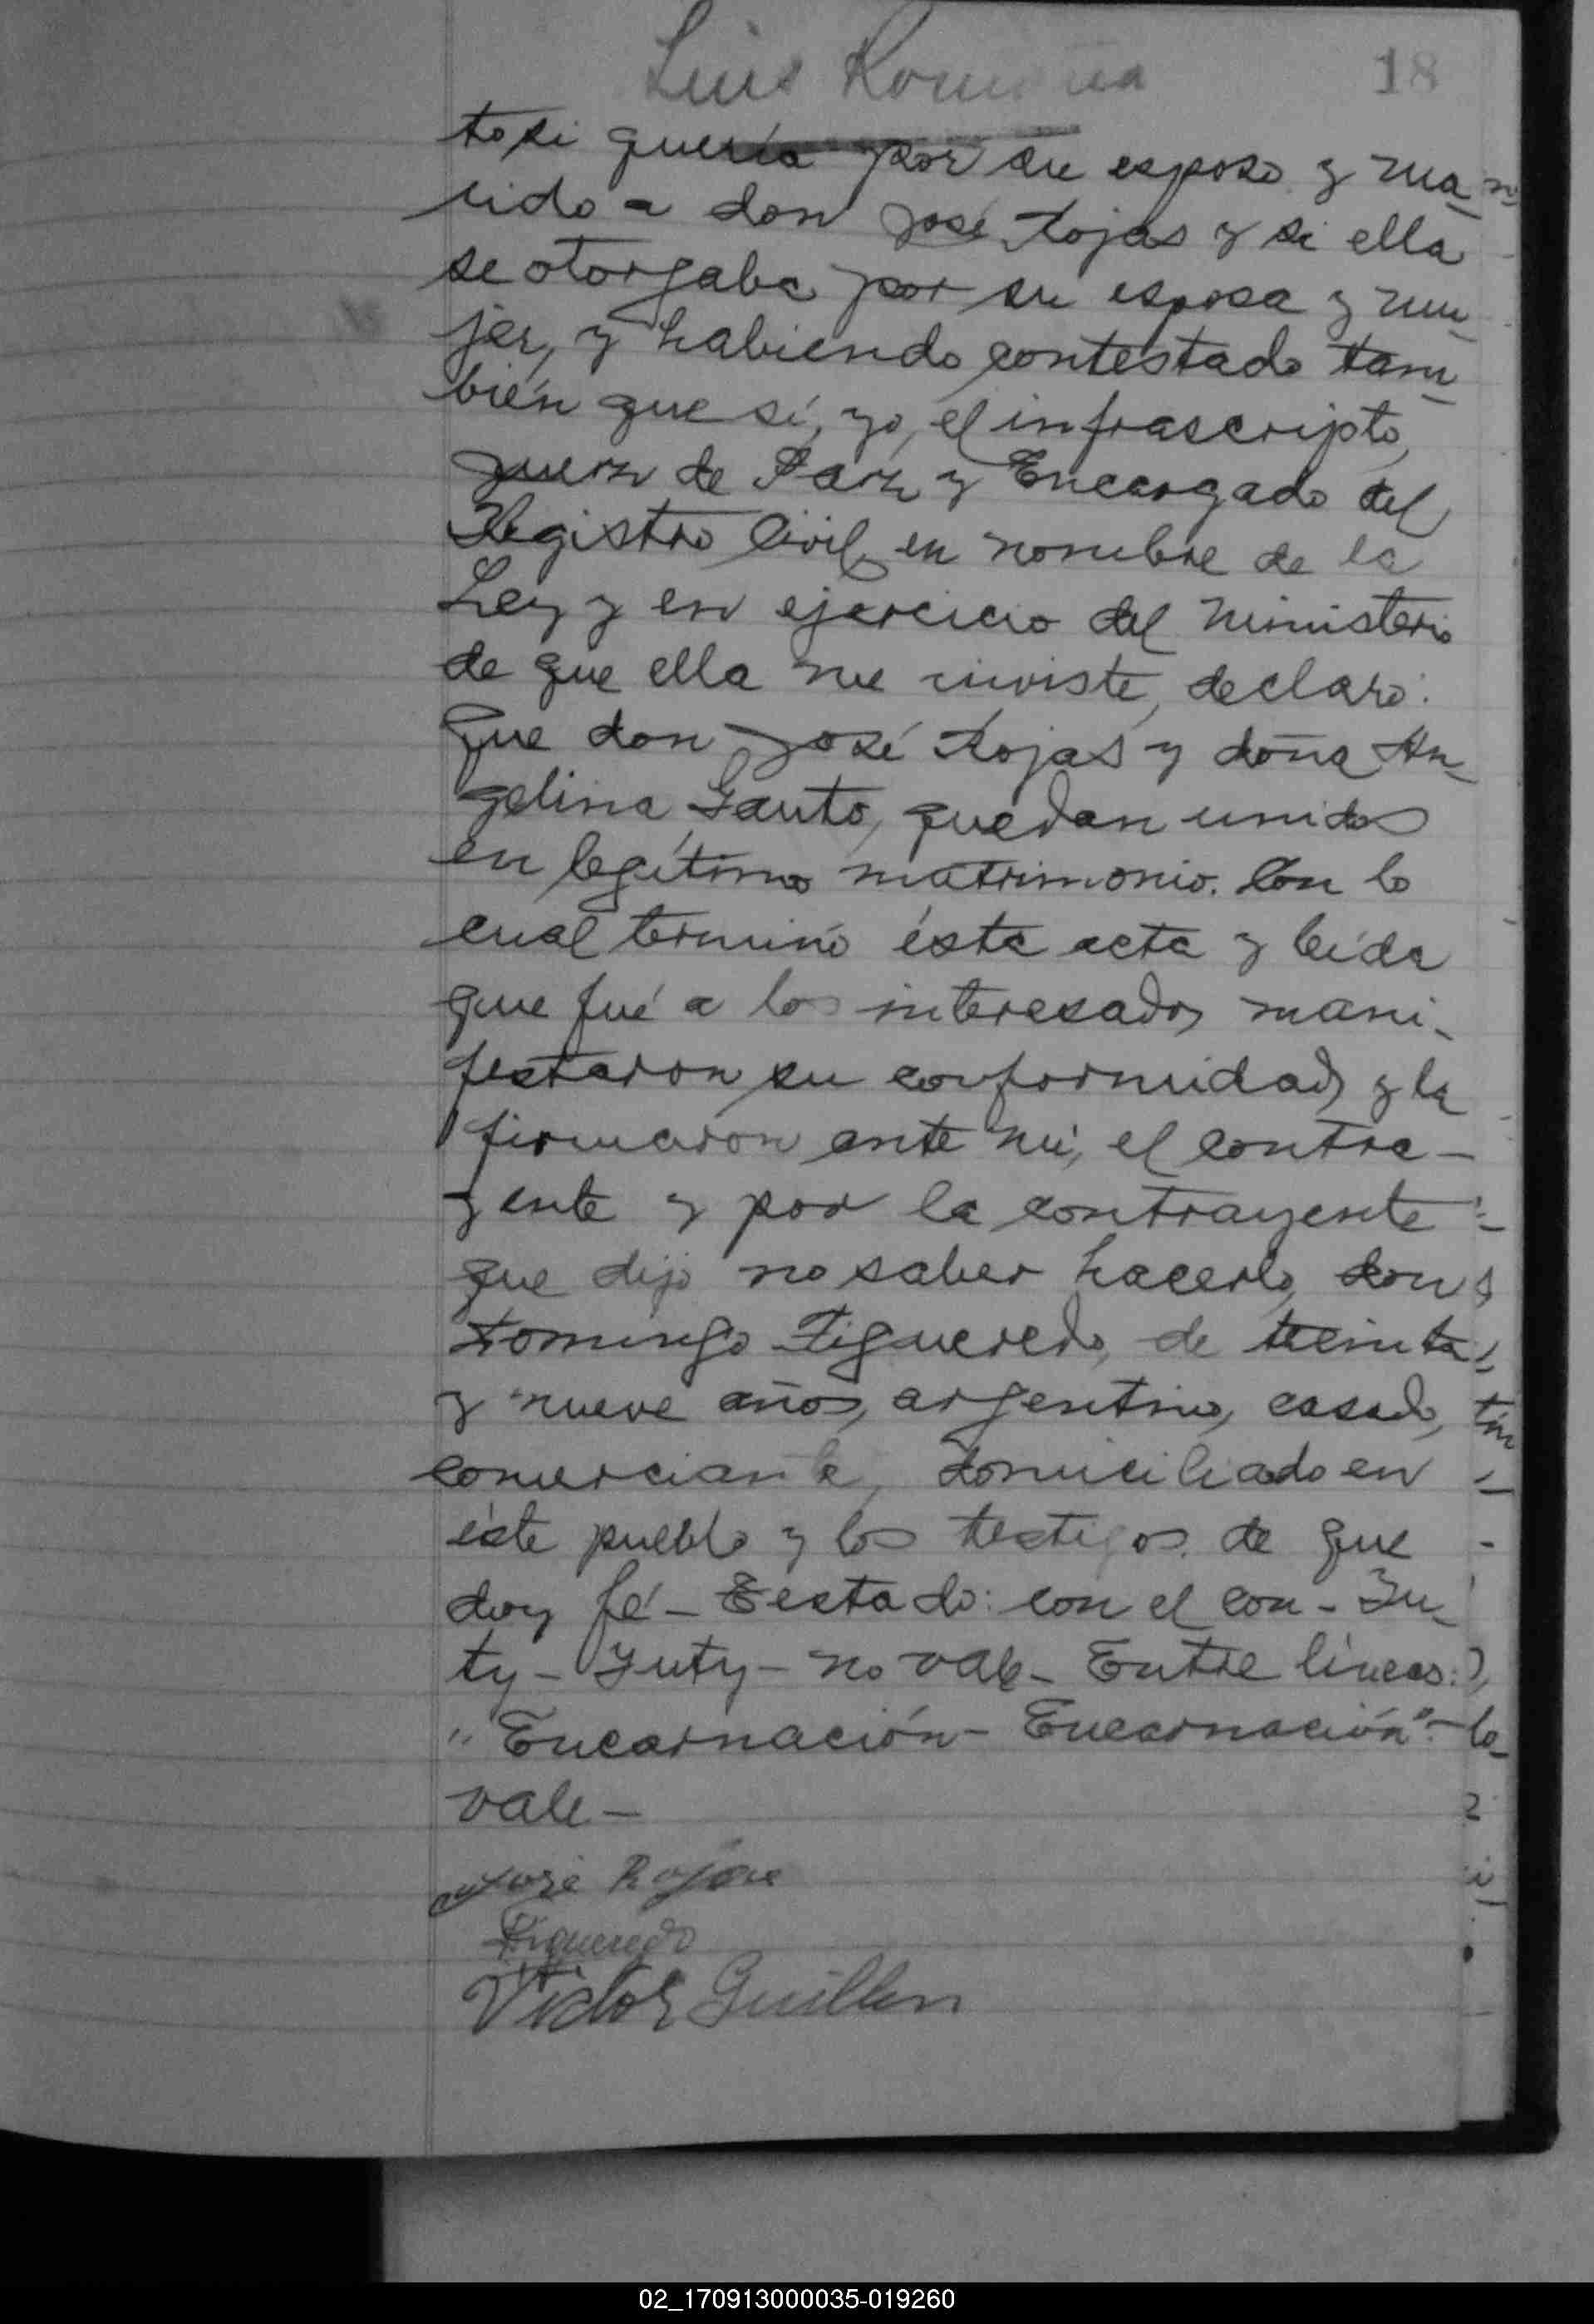 Luis Romaña
18
to si quería por su esposo y ma-
rido a don José Rojas y si ella
se otorgaba por su esposa y mu-
jer, y habiendo contestado tam-
bién que sí, yo, el infrascripto,
Juez de Paz y Encargado del
Registro Civil, en nombre de la
Ley y en ejercicio del ministerio
de que ella me inviste, declaro:
Que don José Rojas y doña An-
gelina Gauto, quedan unidos
en legítimo matrimonio. Con lo
cual terminó ésta acta y leída
que fué a los interesados mani-
festaron su conformidad y la
firmaron ante mí, el contra-
yente y por la contrayente
que dijo no saber hacerlo, don
Domingo Figueredo, de treinta
y nueve años, argentino, casado,
comerciante, domiciliado en
éste pueblo y los testigos de que
doy fé - Testado: con el con - Yu-
ty - Yuty - no vale - Entre líneas:
"Encarnación - Encarnación" -
vale -
José Rojas
Figueredo
Victor Guillen
02_170913000035-019260